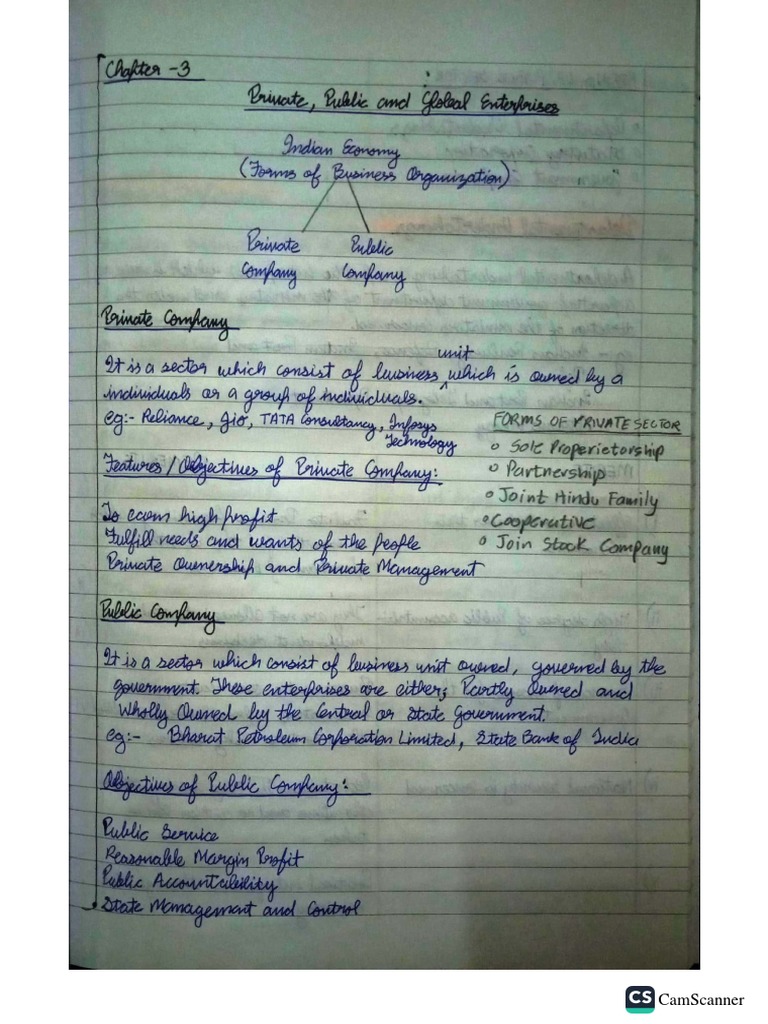 Chapter -3
Private, Public and Global Enterprises
Indian Economy
(Forms of Business Organization)
Private Public
Company Company
Private Company
It is a sector which consist of business unit which is owned by a
individuals or a group of individuals.
eg:- Reliance, Jio, TATA Consultancy, Infosys
Technology
FORMS OF PRIVATE SECTOR
Sole Properietorship
Partnership
Joint Hindu Family
Cooperative
Join Stock Company
Features / Objectives of Private Company:
To earn high profit
Fulfill needs and wants of the people
Private Ownership and Private Management
Public Company
It is a sector which consist of business unit owned, governed by the
government. These enterprises are either; Partly Owned and
Wholly Owned by the Central or State Government.
eg:- Bharat Petroleum Corporation Limited, State Bank of India
Objectives of Public Company:
Public Service
Reasonable Margin Profit
Public Accountability
State Management and Control
CS CamScanner